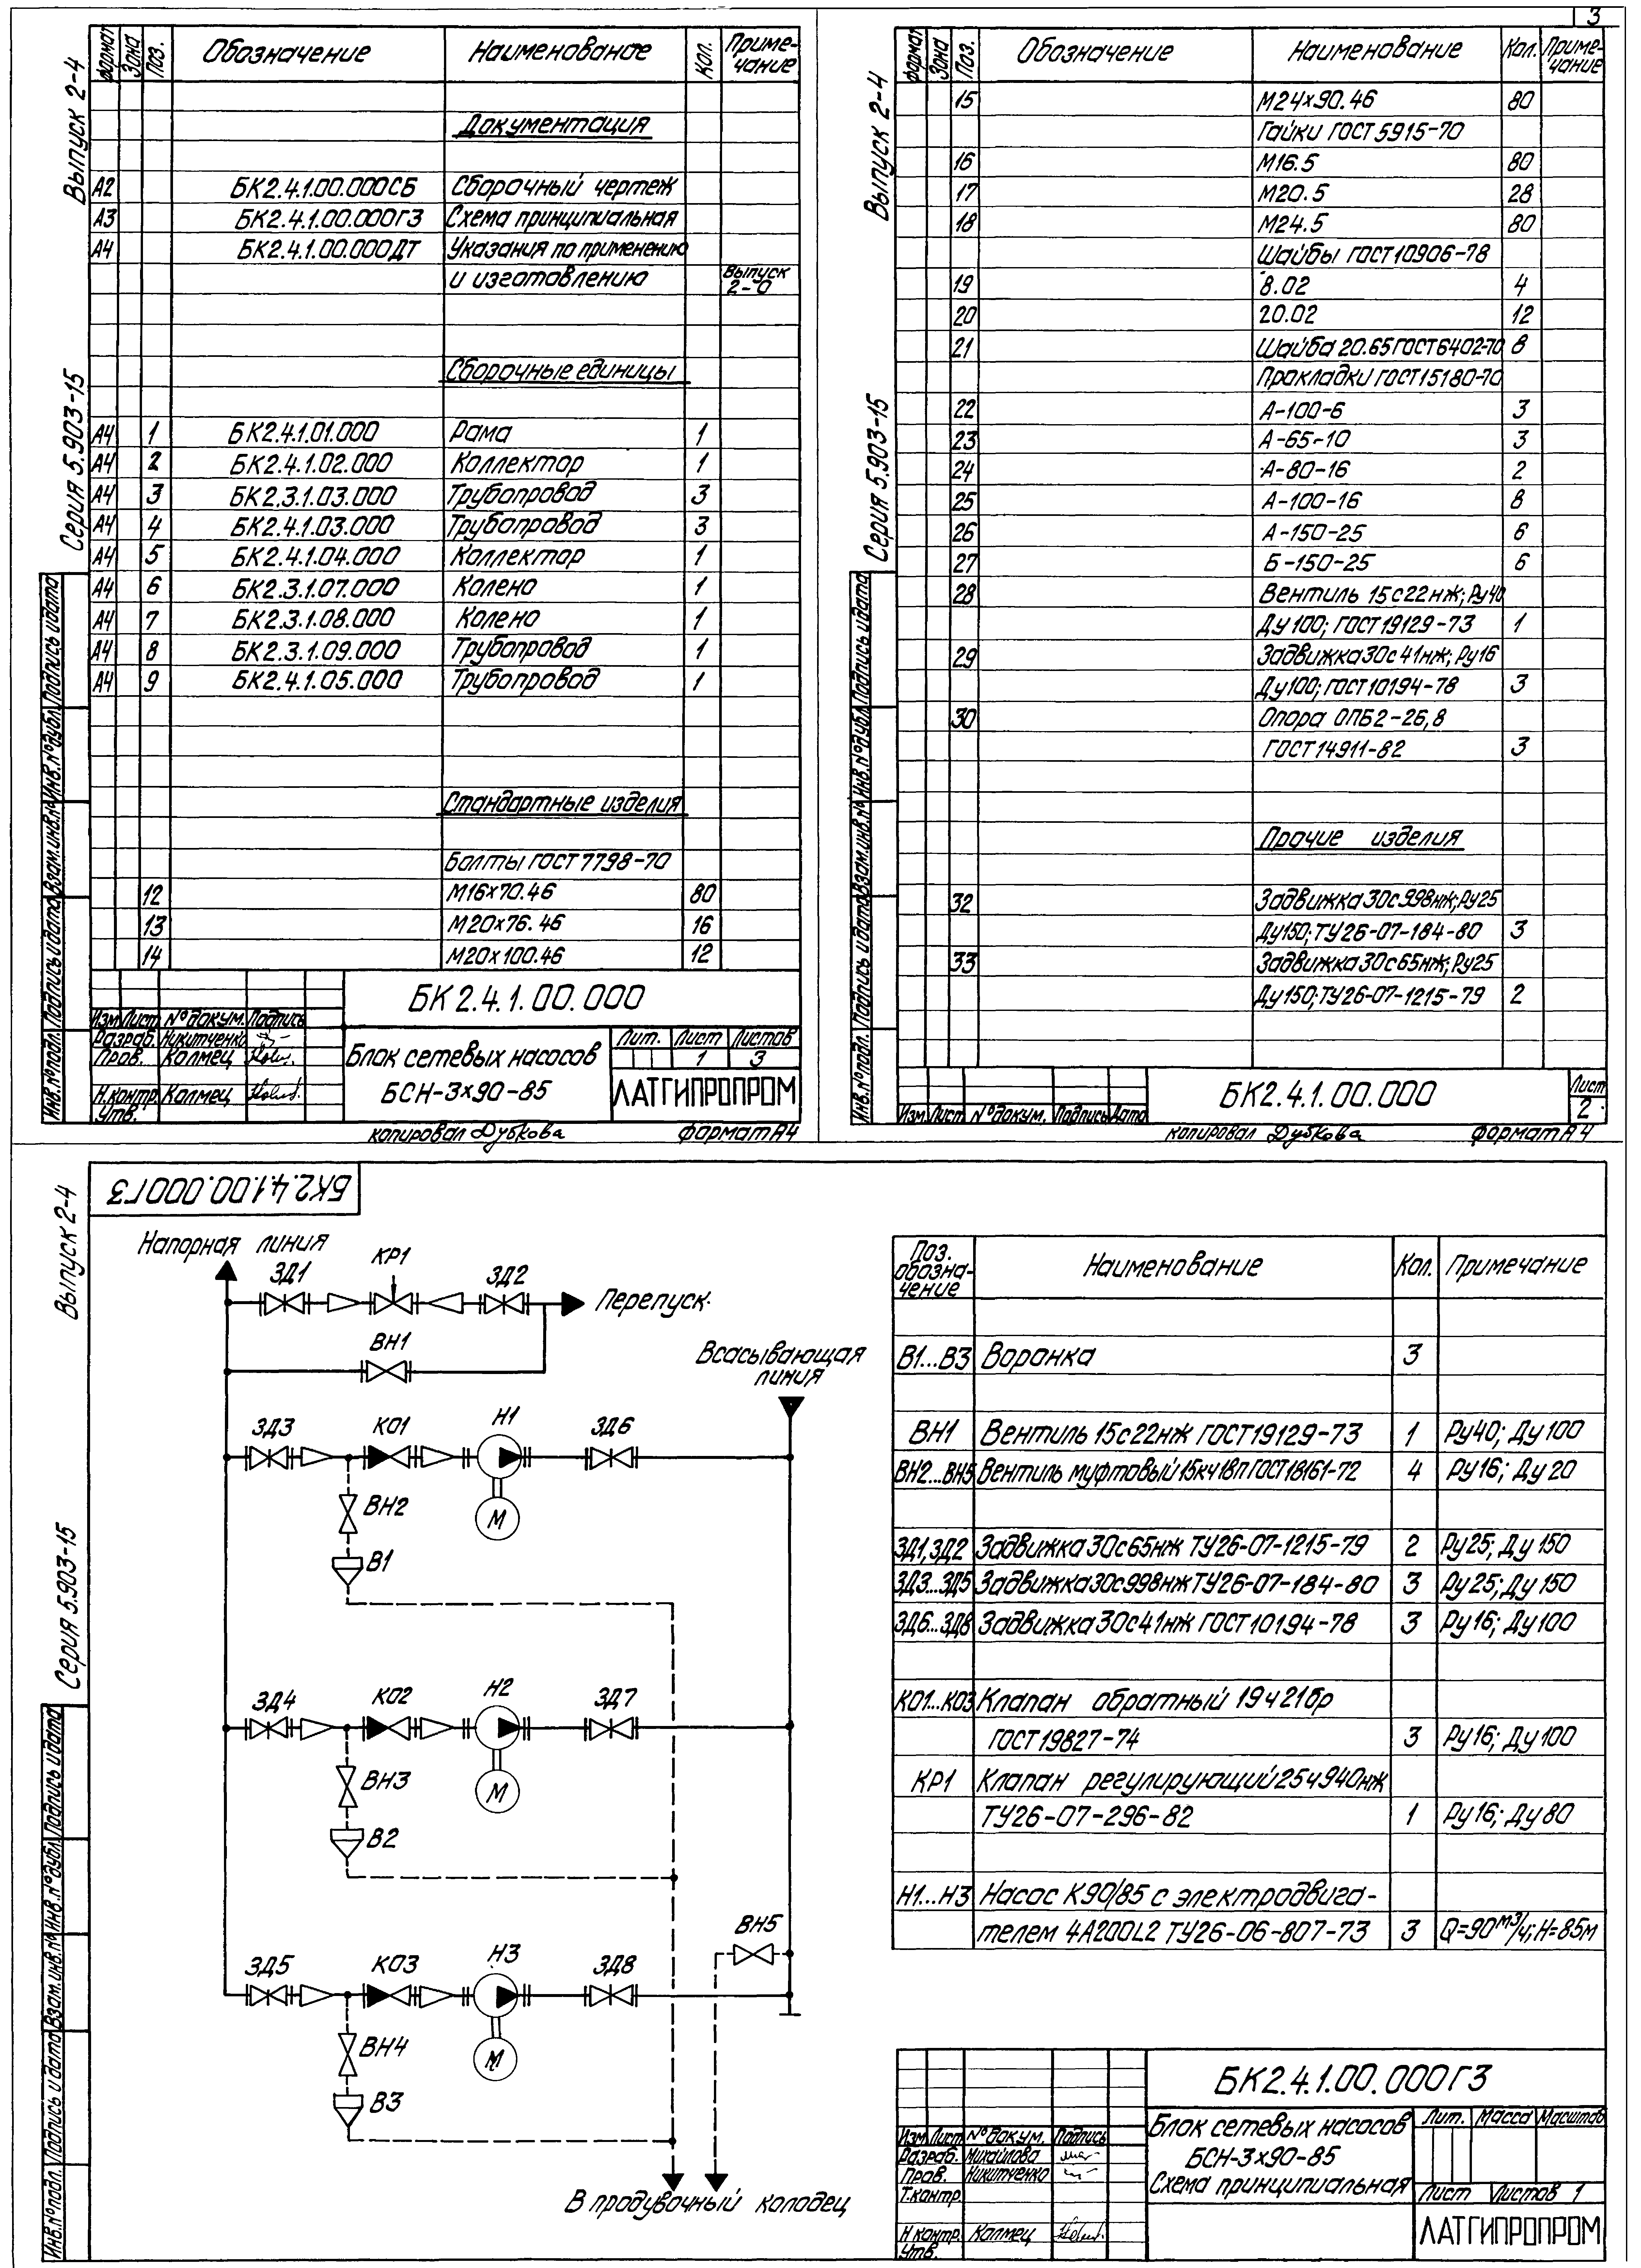 3
Выпуск 2-4
Серия 5.903-15
Формат Зона Поз. Обозначение Наименование Кол. Примечание
Документация
А2 БК2.4.1.00.000СБ Сборочный чертеж
А3 БК2.4.1.00.000ГЗ Схема принципиальная
А4 БК2.4.1.00.000ДТ Указания по применению
и изготовлению Выпуск 2-0
Сборочные единицы
А4 1 БК2.4.1.01.000 Рама 1
А4 2 БК2.4.1.02.000 Коллектор 1
А4 3 БК2.3.1.03.000 Трубопровод 3
А4 4 БК2.4.1.03.000 Трубопровод 3
А4 5 БК2.4.1.04.000 Коллектор 1
А4 6 БК2.3.1.07.000 Колено 1
А4 7 БК2.3.1.08.000 Колено 1
А4 8 БК2.3.1.09.000 Трубопровод 1
А4 9 БК2.4.1.05.000 Трубопровод 1
Стандартные изделия
Болты ГОСТ 7798-70
12 М16х70.46 80
13 М20х76.46 16
14 М20х100.46 12
БК 2.4.1.00.000
Изм Лист № докум. Подпись
Разраб. Никитченко
Пров. Калмец
Н.контр. Калмец
Утв.
Блок сетевых насосов
БСН-3х90-85
Лит. Лист Листов
1 3
ЛАТГИПРОПРОМ
Инв.№ подл. Подпись и дата Взам.инв.№ Инв.№ дубл. Подпись и дата
копировал Дубкова формат А4
Выпуск 2-4
Серия 5.903-15
Формат Зона Поз. Обозначение Наименование Кол. Примечание
15 М24х90.46 80
Гайки ГОСТ 5915-70
16 М16.5 80
17 М20.5 28
18 М24.5 80
Шайбы ГОСТ 10906-78
19 8.02 4
20 20.02 12
21 Шайба 20.65 ГОСТ 6402-70 8
Прокладки ГОСТ 15180-70
22 А-100-6 3
23 А-65-10 3
24 А-80-16 2
25 А-100-16 8
26 А-150-25 6
27 Б-150-25 6
28 Вентиль 15с22нж; Ру40
Ду 100; ГОСТ 19129-73 1
29 Задвижка 30с41нж; Ру16
Ду100; ГОСТ 10194-78 3
30 Опора ОПБ2-26,8
ГОСТ 14911-82 3
Прочие изделия
32 Задвижка 30с998нж; Ру25
Ду150; ТУ26-07-184-80 3
33 Задвижка 30с65нж; Ру25
Ду 150; ТУ26-07-1215-79 2
Изм Лист № докум. Подпись Дата
БК2.4.1.00.000
Лист
2
Инв.№ подл. Подпись и дата Взам.инв.№ Инв.№ дубл. Подпись и дата
копировал Дубкова формат А4
БК2.4.1.00.000ГЗ
Выпуск 2-4
Серия 5.903-15
Напорная линия
ЗД1 КР1 ЗД2
Перепуск.
ВН1
Всасывающая
линия
ЗД3 КО1 Н1 ЗД6
ВН2 М
В1
ЗД4 КО2 Н2 ЗД7
ВН3 М
В2
ВН5
ЗД5 КО3 Н3 ЗД8
ВН4 М
В3
В продувочный колодец
Поз. обозначение Наименование Кол. Примечание
В1...В3 Воронка 3
ВН1 Вентиль 15с22нж ГОСТ 19129-73 1 Ру40; Ду 100
ВН2...ВН5 Вентиль муфтовый 15кч18п ГОСТ 18161-72 4 Ру16; Ду 20
ЗД1,ЗД2 Задвижка 30с65нж ТУ26-07-1215-79 2 Ру25; Ду 150
ЗД3...ЗД5 Задвижка 30с998нж ТУ26-07-184-80 3 Ру25; Ду 150
ЗД6...ЗД8 Задвижка 30с41нж ГОСТ 10194-78 3 Ру16; Ду100
КО1...КО3 Клапан обратный 19ч21бр
ГОСТ 19827-74 3 Ру16; Ду 100
КР1 Клапан регулирующий 25ч940нж
ТУ26-07-296-82 1 Ру16; Ду 80
Н1...Н3 Насос К90/85 с электродвига-
телем 4А200L2 ТУ26-06-807-73 3 Q=90м³/ч; Н=85м
БК2.4.1.00.000ГЗ
Изм Лист № докум. Подпись
Разраб. Михайлова
Пров. Никитченко
Т.контр.
Н контр. Калмец
Утв.
Блок сетевых насосов
БСН-3х90-85
Схема принципиальная
Лит. Масса Масштаб
Лист Листов 1
ЛАТГИПРОПРОМ
Инв.№ подл. Подпись и дата Взам.инв.№ Инв.№ дубл. Подпись и дата